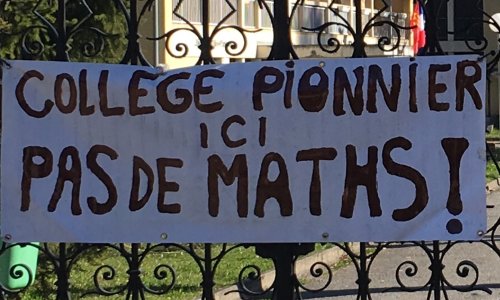 COLLEGE PIONNIER
ICI
PAS DE MATHS!